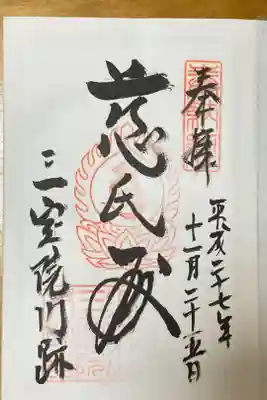 奉拝
平成二十七年
十一月二十五日
慈氏殿
三宝院門跡